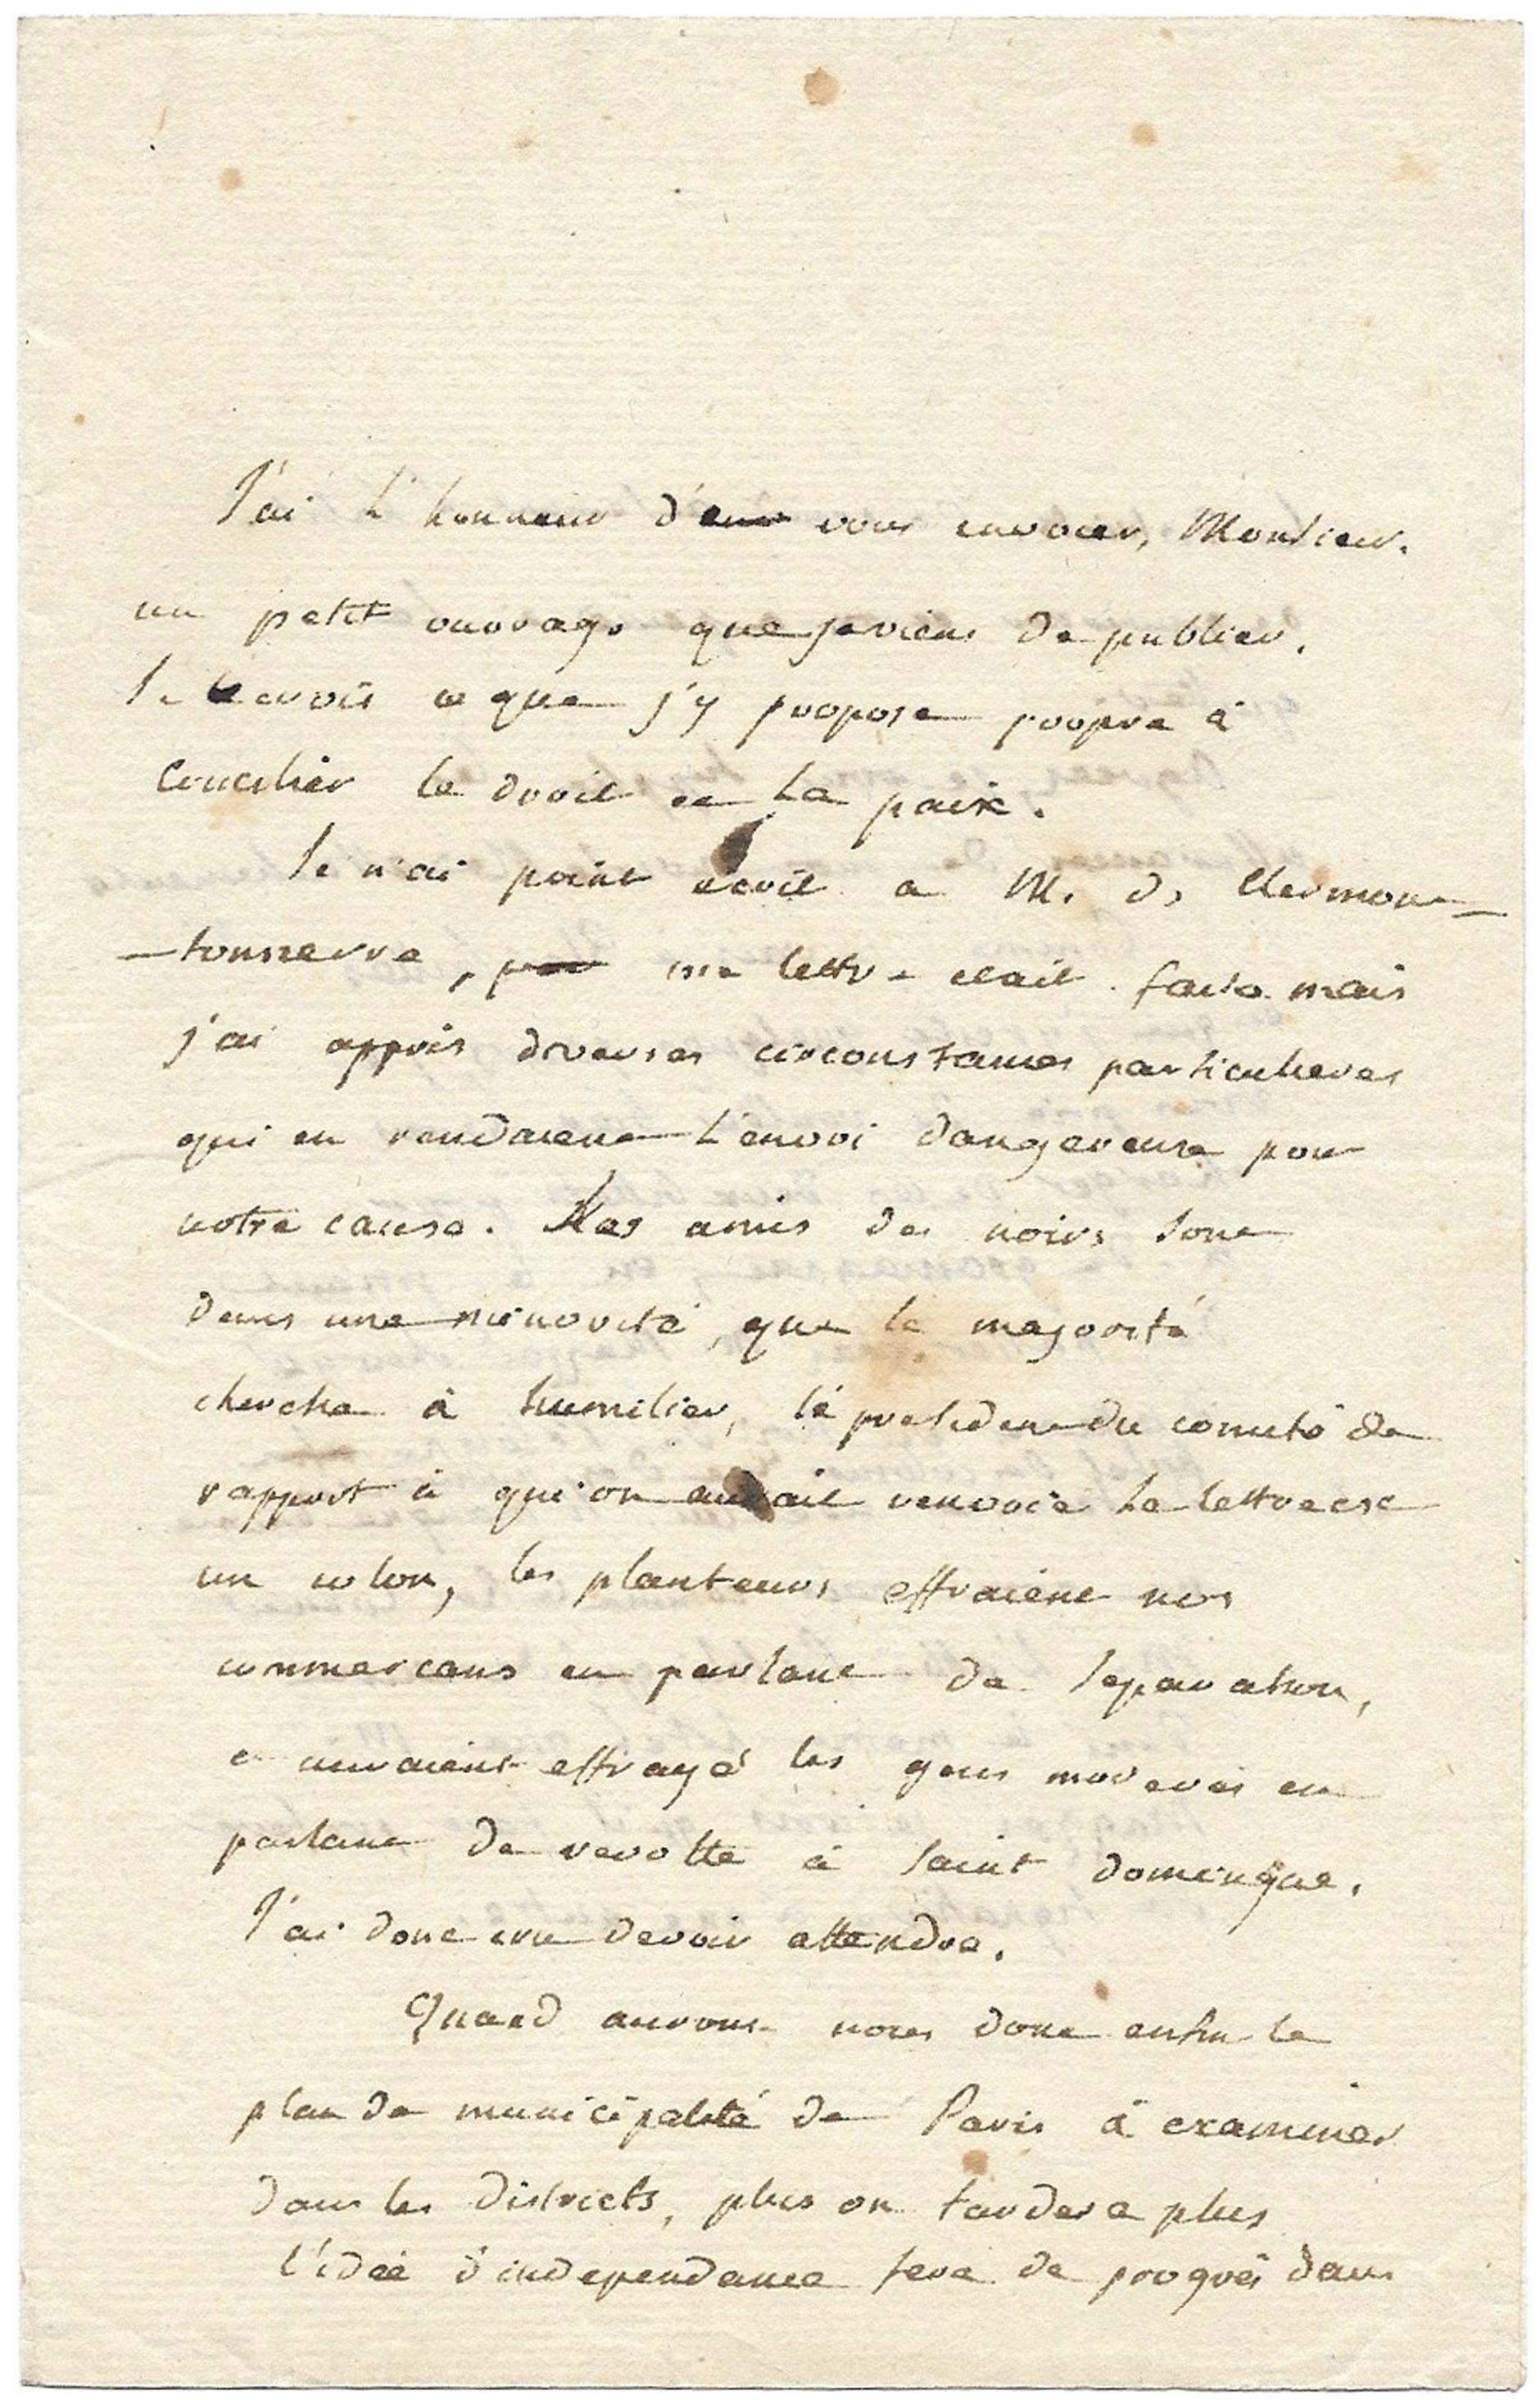 J'ai l'honneur d'en vous envoier, Monsieur.
un petit ouvrage que je viens de publier.
Je crois ce que j'y propose propre à
concilier le droit et la paix.
Je n'ai point écrit a M. de Clermont=
—tonnerre, ma lettre etait faite mais
j'ai appris diverses circonstances particulieres
qui en rendaient l'envoi dangereuse pour
notre cause. Les amis des noirs sont
dans une minorité, que la majorité
cherche à humilier, le president du comité de
rapport à qui on aurait renvoié la lettre est
un colon, les planteurs effraient nos
commercans en parlant de separation,
et auraient effrayé les gens moderés en
parlant de revolte à Saint domingue.
J'ai donc cru devoir attendre.
Quand aurons nous donc enfin le
plan de municipalité de Paris à examiner
dans les districts, plus on tardera plus
l'idée d'independance fera de progrès dans